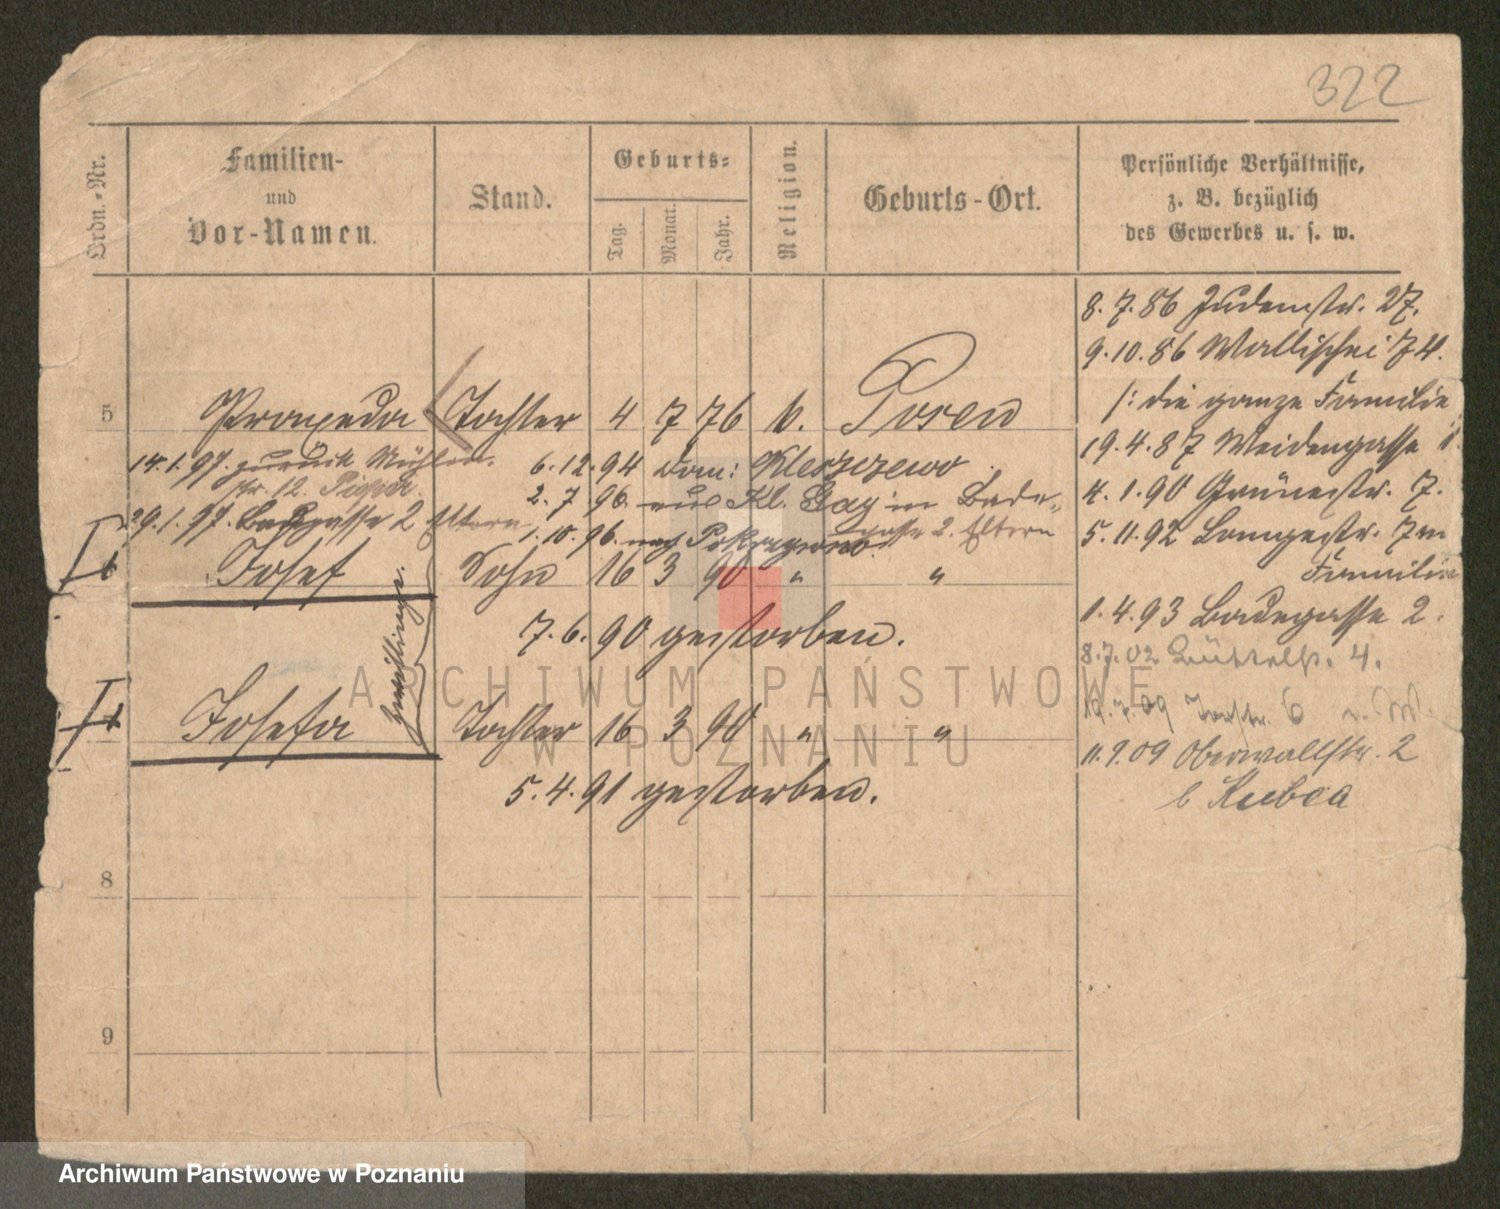 322
Ordn.-Nr.
Familien-
und
Vor-Namen.
Stand.
Geburts-
Tag.
Monat.
Jahr.
Religion.
Geburts-Ort.
Persönliche Verhältnisse,
z. B. bezüglich
des Gewerbes u. s. w.
5 Praxeda Tochter 4 7 76 k. Posen
14.1.97. zurück Mühlen-
str. 12.
6.12.94 Dom: Kleszczewo
2.7.96. aus Kl. Gay in Bade-
gasse 2. Eltern
29.1.97. Badegasse 2 Eltern
1.10.96. nach
6 Josef Sohn 16 3 90 " "
7.6.90 gestorben.
Zwillinge.
Josefa Tochter 16 3 90 " "
5.4.91 gestorben.
8
9
8.7.86 Judenstr. 27.
9.10.86 Wallischei 74.
/: die ganze Familie
19.4.87 Weidengasse
4.1.90 Grünestr. 7.
5.11.92 Langestr. 7 m
Familie
1.4.93 Badegasse 2.
8.7.02 Büttelstr. 4.
6
11.9.09 Oberwallstr. 2
b Kubca
ARCHIWUM PAŃSTWOWE
W POZNANIU
Archiwum Państwowe w Poznaniu